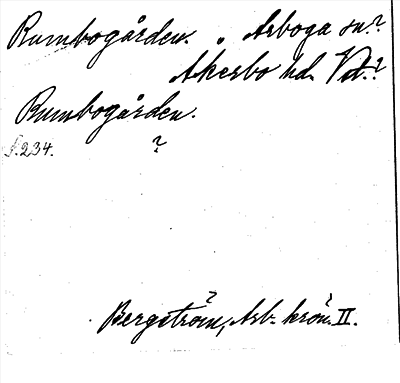 Rumbogården. Arboga sn.?
Åkerbo hd. Vstm.?
Rumbogården.
s.234. ?
Bergström, Arb. krön. II.